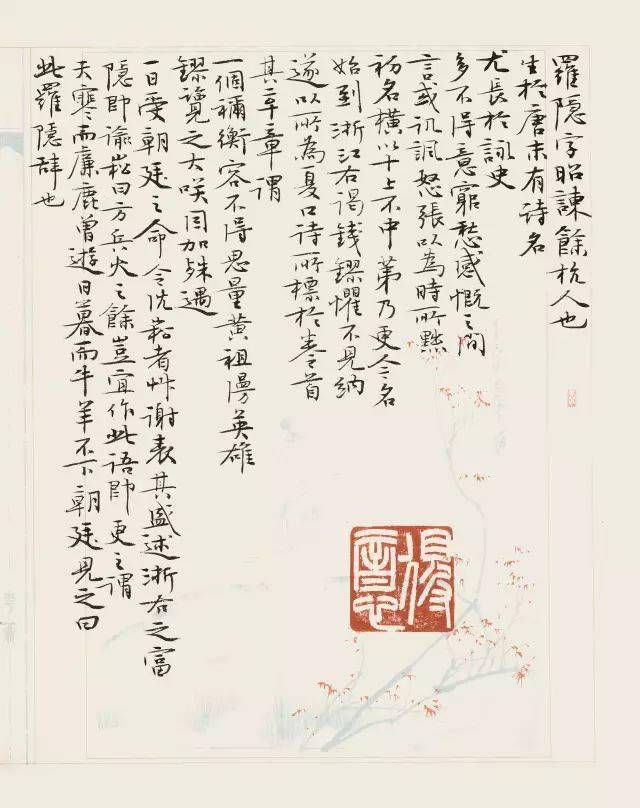 羅隱字昭諫餘杭人也
生於唐末有诗名
尤長於詠史
多不得意窮愁感慨之間
言或訊諷怒張以為時所黜
初名横以十上不中第乃更今名
始到浙江右謁錢鏐懼不見納
遂以所為夏口诗所標於卷之首
其卒章謂
一個禰衡容不得思量黄祖謾英雄
鏐覽之大咲因加殊遇
一日受朝廷之命令沈菘者艸谢表其盛述淅右之富
隱即谕崧曰方兵火之餘豈宜作此语即更之謂
天寒而麋鹿曾遊日暮而牛羊不下朝廷見之曰
此羅隱辞也